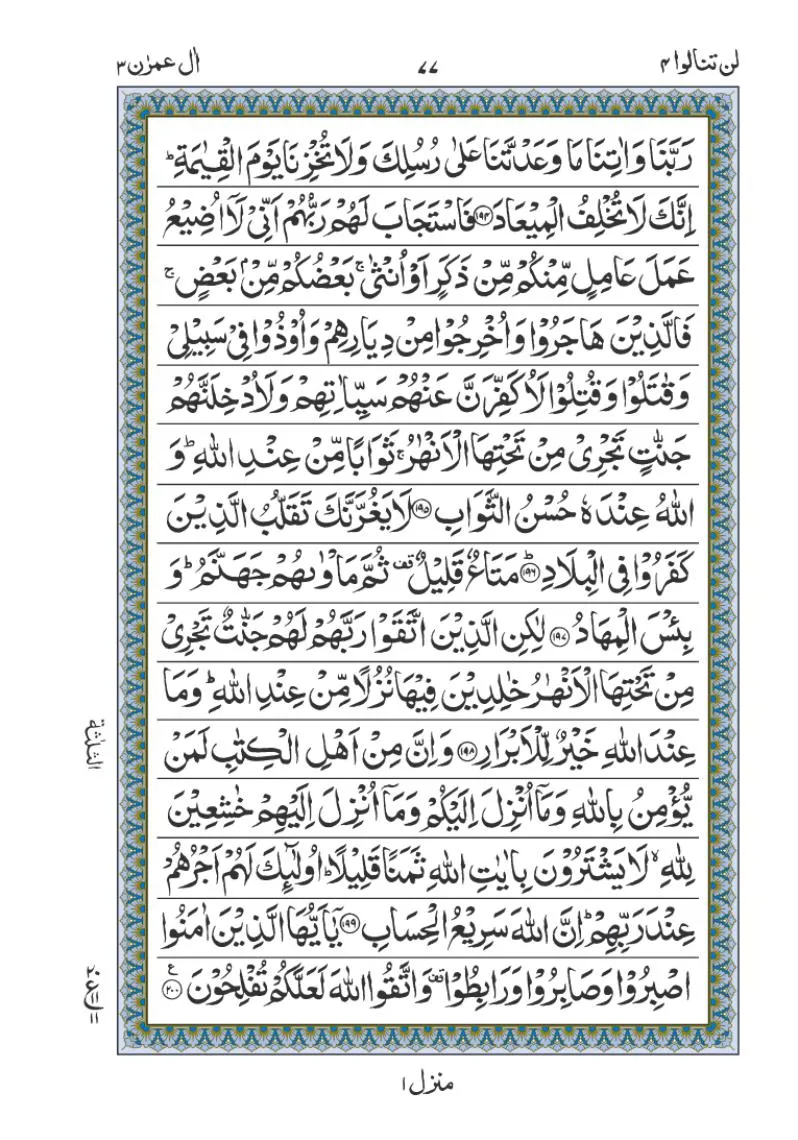 لن تنالوا ۴
۷۷
اٰل عمرٰن ۳
رَبَّنَا وَاٰتِنَا مَا وَعَدْتَّنَا عَلٰى رُسُلِكَ وَلَا تُخْزِنَا يَوْمَ الْقِيٰمَةِ ؕ
اِنَّكَ لَا تُخْلِفُ الْمِيْعَادَ ﴿۱۹۴﴾ فَاسْتَجَابَ لَهُمْ رَبُّهُمْ اَنِّىْ لَاۤ اُضِيْعُ
عَمَلَ عَامِلٍ مِّنْكُمْ مِّنْ ذَكَرٍ اَوْ اُنْثٰى ۚ بَعْضُكُمْ مِّنْۢ بَعْضٍ ۚ
فَالَّذِيْنَ هَاجَرُوْا وَاُخْرِجُوْا مِنْ دِيَارِهِمْ وَاُوْذُوْا فِىْ سَبِيْلِىْ
وَقٰتَلُوْا وَقُتِلُوْا لَاُكَفِّرَنَّ عَنْهُمْ سَيِّاٰتِهِمْ وَلَاُدْخِلَنَّهُمْ
جَنّٰتٍ تَجْرِىْ مِنْ تَحْتِهَا الْاَنْهٰرُ ۚ ثَوَابًا مِّنْ عِنْدِ اللّٰهِ ؕ وَ
اللّٰهُ عِنْدَهٗ حُسْنُ الثَّوَابِ ﴿۱۹۵﴾ لَا يَغُرَّنَّكَ تَقَلُّبُ الَّذِيْنَ
كَفَرُوْا فِى الْبِلَادِ ؕ﴿۱۹۶﴾ مَتَاعٌ قَلِيْلٌ قف ثُمَّ مَاْوٰىهُمْ جَهَنَّمُ ؕ وَ
بِئْسَ الْمِهَادُ ﴿۱۹۷﴾ لٰكِنِ الَّذِيْنَ اتَّقَوْا رَبَّهُمْ لَهُمْ جَنّٰتٌ تَجْرِىْ
مِنْ تَحْتِهَا الْاَنْهٰرُ خٰلِدِيْنَ فِيْهَا نُزُلًا مِّنْ عِنْدِ اللّٰهِ ؕ وَمَا
عِنْدَ اللّٰهِ خَيْرٌ لِّلْاَبْرَارِ ﴿۱۹۸﴾ وَاِنَّ مِنْ اَهْلِ الْكِتٰبِ لَمَنْ
الثلثة
يُّؤْمِنُ بِاللّٰهِ وَمَاۤ اُنْزِلَ اِلَيْكُمْ وَمَاۤ اُنْزِلَ اِلَيْهِمْ خٰشِعِيْنَ
لِلّٰهِ ۙ لَا يَشْتَرُوْنَ بِاٰيٰتِ اللّٰهِ ثَمَنًا قَلِيْلًا ؕ اُولٰٓئِكَ لَهُمْ اَجْرُهُمْ
عِنْدَ رَبِّهِمْ ؕ اِنَّ اللّٰهَ سَرِيْعُ الْحِسَابِ ﴿۱۹۹﴾ يٰۤاَيُّهَا الَّذِيْنَ اٰمَنُوا
اصْبِرُوْا وَصَابِرُوْا وَرَابِطُوْا قف وَاتَّقُوا اللّٰهَ لَعَلَّكُمْ تُفْلِحُوْنَ ﴿۲۰۰﴾ ع
منزل ۱